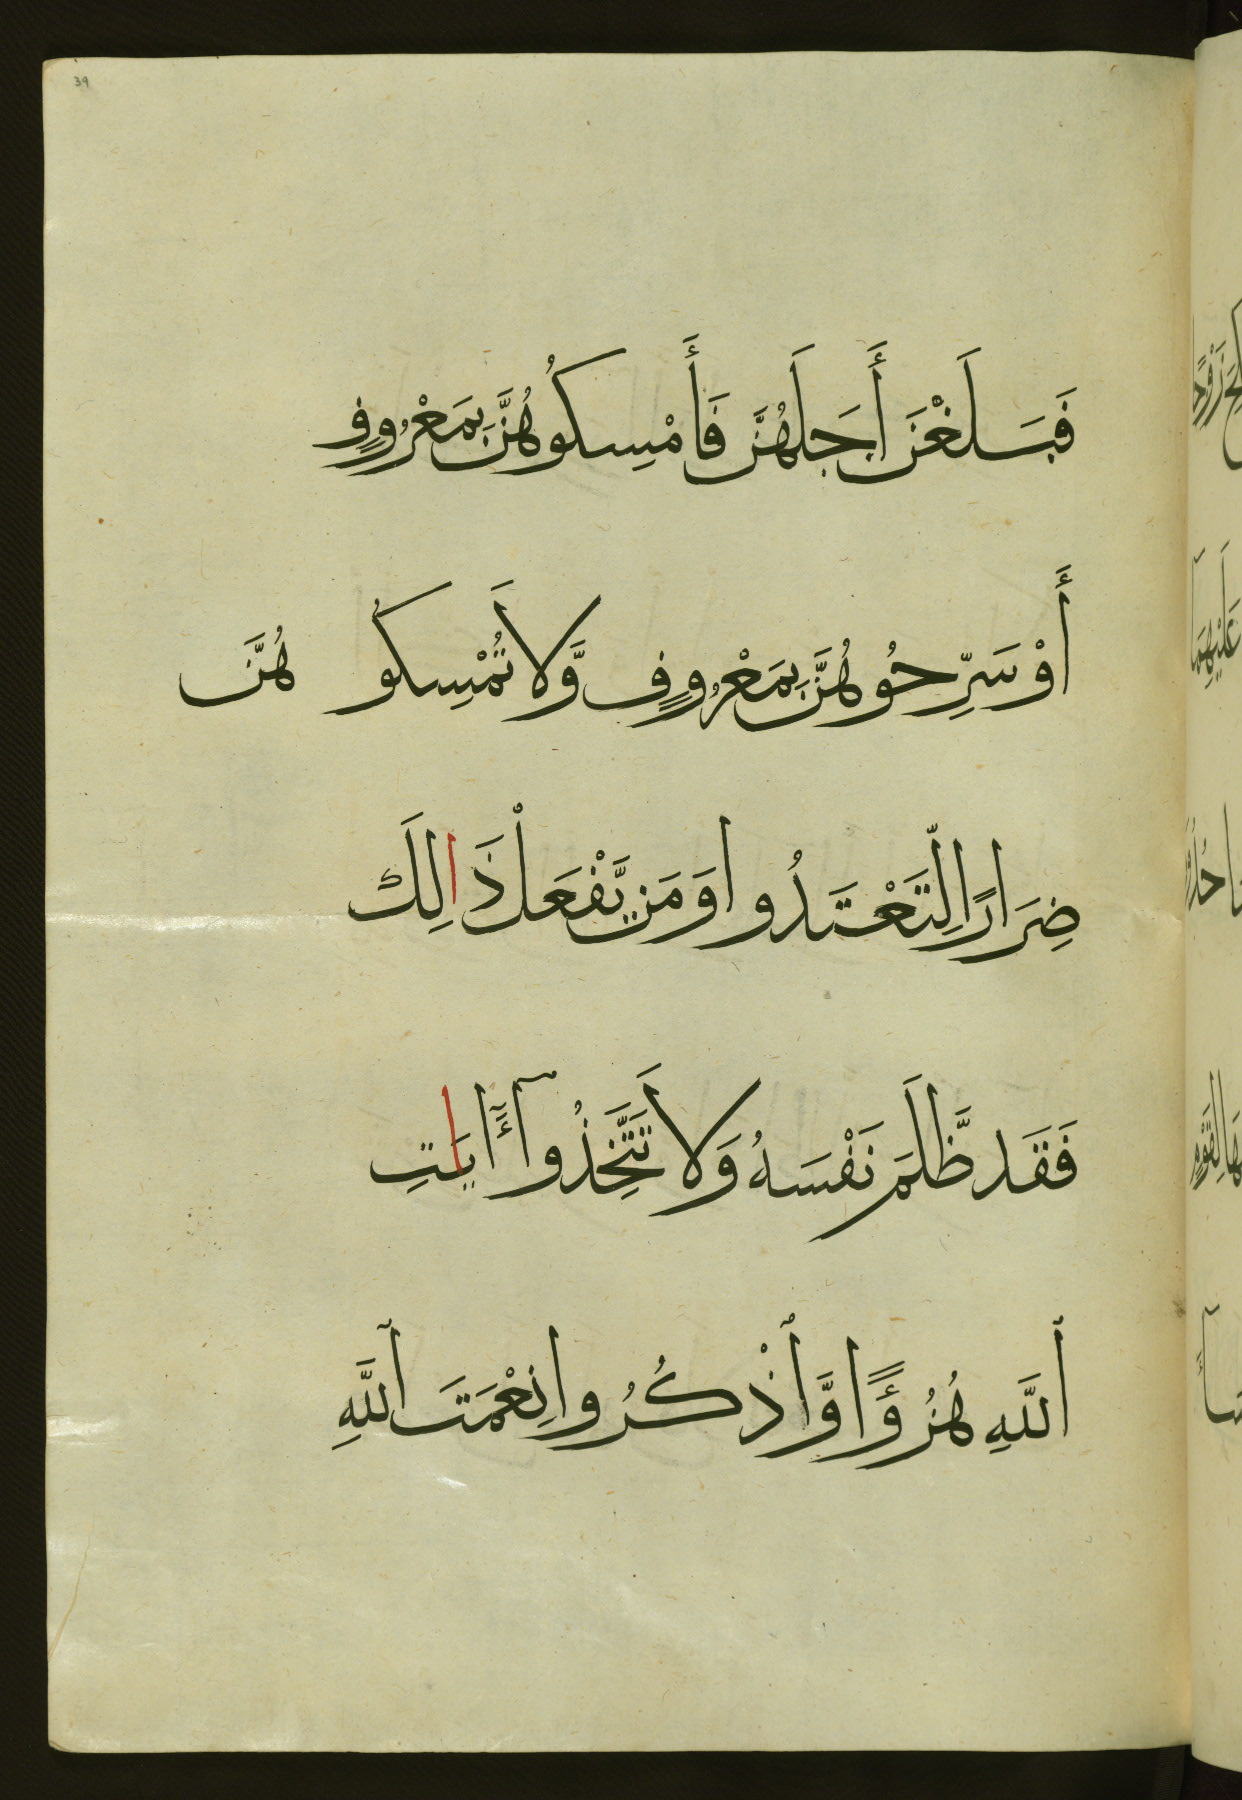 39
فَبَلَغْنَ أَجَلَهُنَّ فَأَمْسِكُوهُنَّ بِمَعْرُوفٍ
أَوْ سَرِّحُوهُنَّ بِمَعْرُوفٍ وَّلَا تُمْسِكُوهُنَّ
ضِرَارًا لِّتَعْتَدُوا وَمَن يَّفْعَلْ ذَالِكَ
فَقَد ظَّلَمَ نَفْسَهُ وَلَا تَتَّخِذُوٓا ءَايَاتِ
ٱللَّهِ هُزُؤًا وَّٱذْكُرُوا نِعْمَتَ ٱللَّهِ